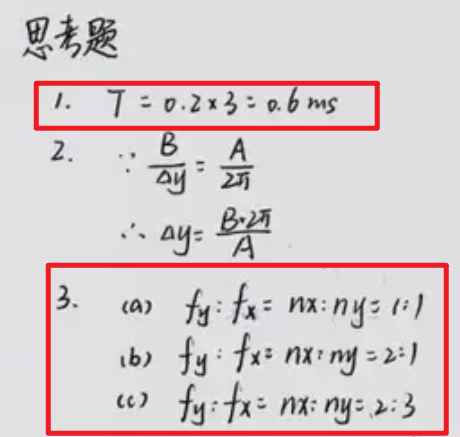 思考题
1. T = 0.2×3 = 0.6 ms
2. ∵ B/Δy = A/2π
∴ Δy = B·2π/A
3. (a) fy : fx = nx : ny = 1:1
(b) fy : fx = nx : ny = 2:1
(c) fy : fx = nx : ny = 2:3